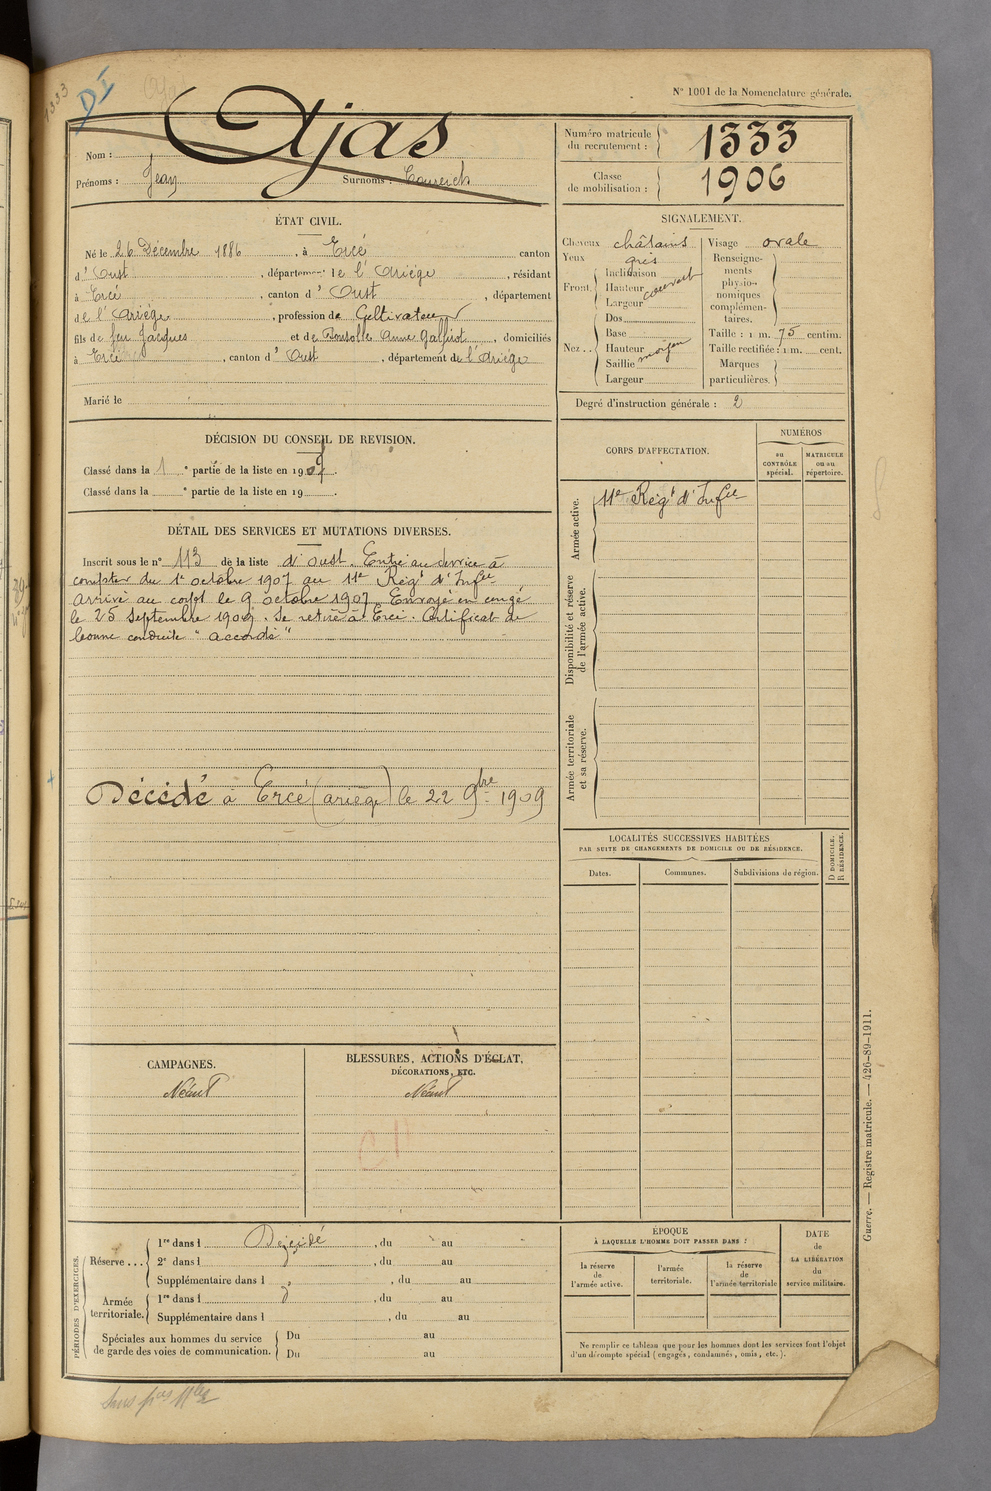 1333
DI
N° 1001 de la Nomenclature générale.
Nom : Ajas
Prénoms : Jean Surnoms :
Numéro matricule du recrutement : 1333
Classe de mobilisation : 1906
ÉTAT CIVIL.
Né le 26 Décembre 1886, à Ercé canton
d'Oust, département de l'Ariège, résidant
à Ercé, canton d'Oust, département
de l'Ariège, profession de Cultivateur
fils de feu Jacques et de Anne Galfirot, domiciliés
à Ercé, canton d'Oust, département de l'Ariège
Marié le
SIGNALEMENT.
Cheveux châtains
Yeux gris
Front. Inclinaison
Hauteur
Largeur
couvert
Nez.. Dos
Base
Hauteur
Saillie
Largeur
moyen
Visage ovale
Renseigne-
ments
physio-
nomiques
complémen-
taires.
Taille : 1 m. 75 centim.
Taille rectifiée : 1 m. cent.
Marques
particulières.
Degré d'instruction générale : 2
DÉCISION DU CONSEIL DE REVISION.
Classé dans la 1e partie de la liste en 1907.
Classé dans la e partie de la liste en 19 .
DÉTAIL DES SERVICES ET MUTATIONS DIVERSES.
Inscrit sous le n° 113 de la liste d'Oust. Entré au service à
compter du 1er octobre 1907 au 11e Régt d'Infie
Arrivé au corps le 9 octobre 1907. Envoyé en congé
le 25 Septembre 1909. Se retire à Ercé. Certificat de
bonne conduite "accordé"
Décédé à Ercé (ariège) le 22 9bre 1909
CORPS D'AFFECTATION.
NUMÉROS
au
CONTRÔLE
spécial.
MATRICULE
ou au
répertoire.
Armée active.
11e Régt d'Infie
Disponibilité et réserve
de l'armée active.
Armée territoriale
et sa réserve.
LOCALITÉS SUCCESSIVES HABITÉES
PAR SUITE DE CHANGEMENTS DE DOMICILE OU DE RÉSIDENCE.
D DOMICILE.
R RÉSIDENCE.
Dates. Communes. Subdivisions de région.
CAMPAGNES.
Néant
BLESSURES, ACTIONS D'ÉCLAT,
DÉCORATIONS, ETC.
Néant
PÉRIODES D'EXERCICES.
Réserve... 1re dans l Décédé, du au
2e dans l , du au
Supplémentaire dans l , du au
Armée territoriale. 1re dans l , du au
Supplémentaire dans l , du au
Spéciales aux hommes du service
de garde des voies de communication.
Du au
Du au
ÉPOQUE
À LAQUELLE L'HOMME DOIT PASSER DANS :
la réserve
de
l'armée active.
l'armée
territoriale.
la réserve
de
l'armée territoriale
DATE
de
LA LIBÉRATION
du
service militaire.
Ne remplir ce tableau que pour les hommes dont les services font l'objet
d'un décompte spécial (engagés, condamnés, omis, etc.).
Guerre. — Registre matricule. — 426-89-1911.